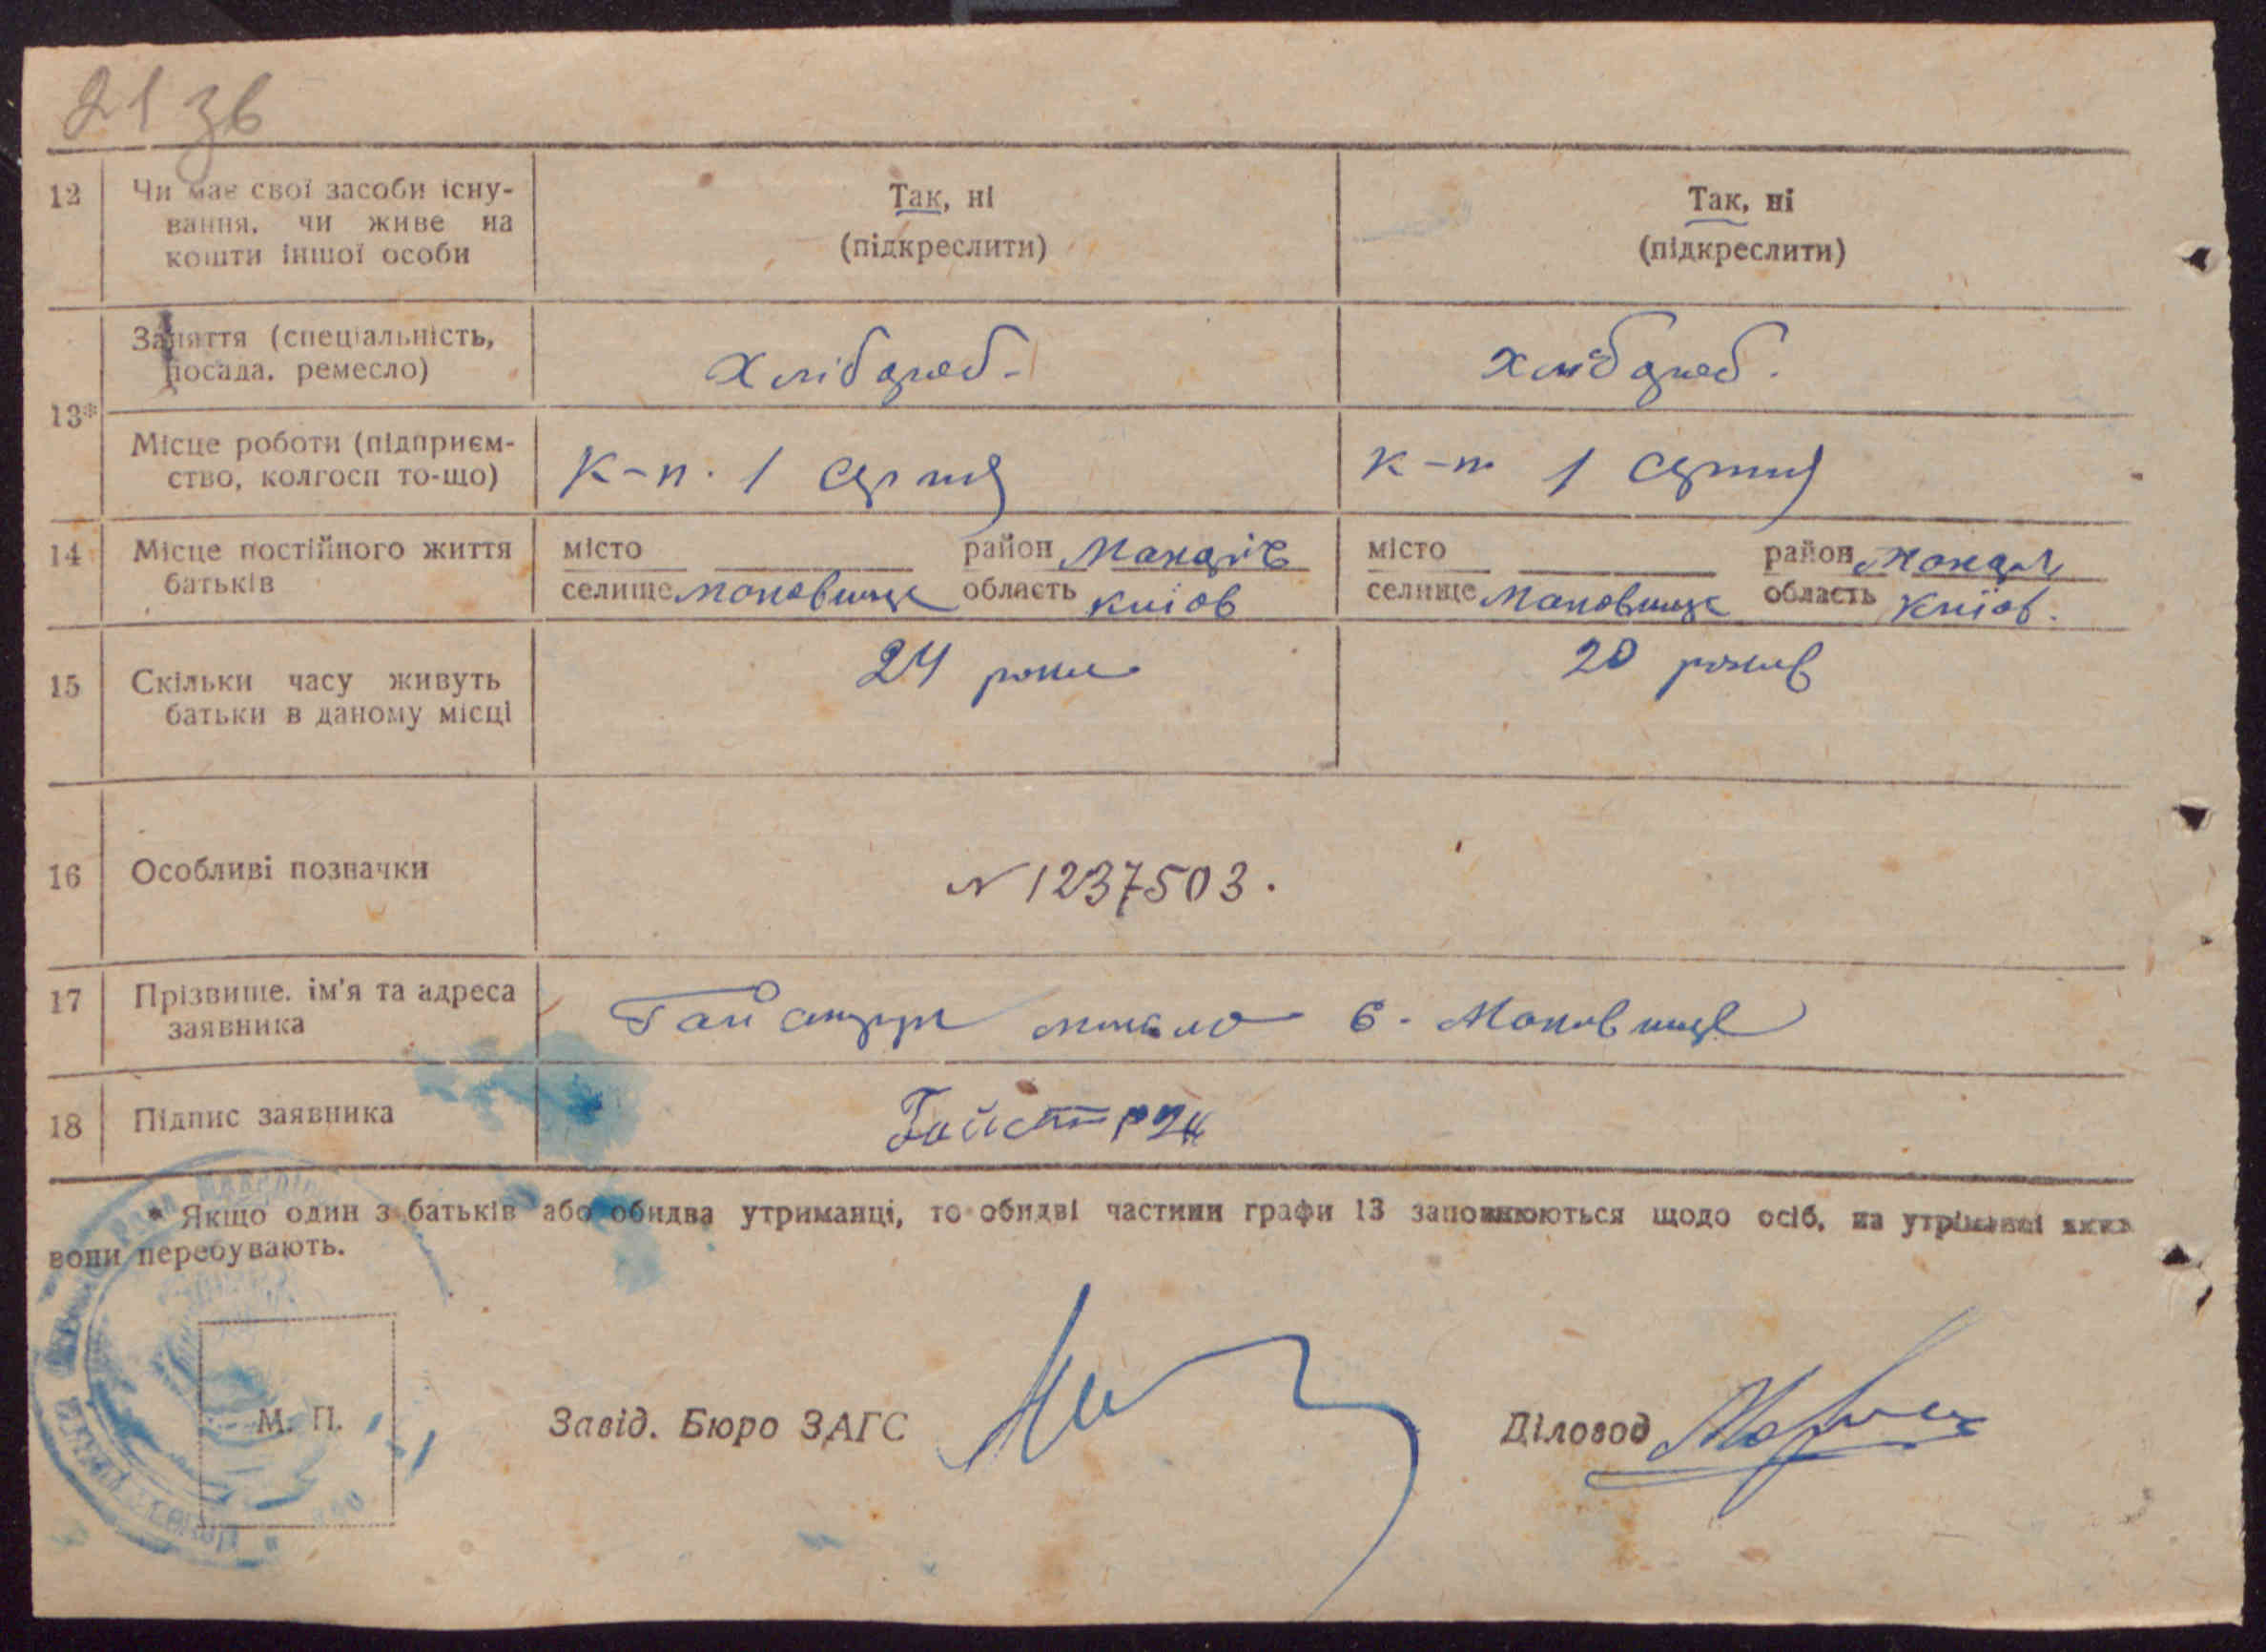 21 зв
12 Чи має свої засоби існу- Так, ні Так, ні
вання, чи живе на (підкреслити) (підкреслити)
кошти іншої особи
Заняття (спеціальність, Хлібороб. Хлібороб.
посада, ремесло)
13*
Місце роботи (підприєм- к-п. 1 серпня к-п 1 серпня
ство, колгосп то-що)
14 Місце постійного життя місто район Макарів місто район Макар
батьків селище Маковище область Київ селище Маковище область Київ.
15 Скільки часу живуть 24 роки 20 років
батьки в даному місці
16 Особливі позначки N 1237503.
17 Прізвище, ім'я та адреса с. Маковище
заявника
18 Підпис заявника Гайструк
* Якщо один з батьків або обидва утриманці, то обидві частини графи 13 заповнюються щодо осіб, на утріманні яких
вони перебувають.
М. П. Завід. Бюро ЗАГС Діловод